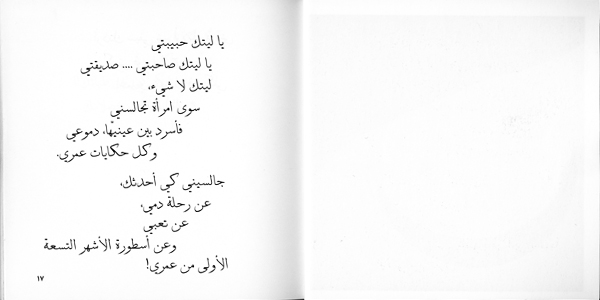 يا ليتك حبيبتي
يا ليتك صاحبتي .... صديقتي
ليتك لا شيء،
سوى امرأة تجالسني
فأسرد بين عينيها، دموعي
وكل حكايات عمري.
جالسيني كي أحدثك،
عن رحلة دمي،
عن تعبي
وعن أسطورة الأشهر التسعة
الأولى من عمري!
١٧